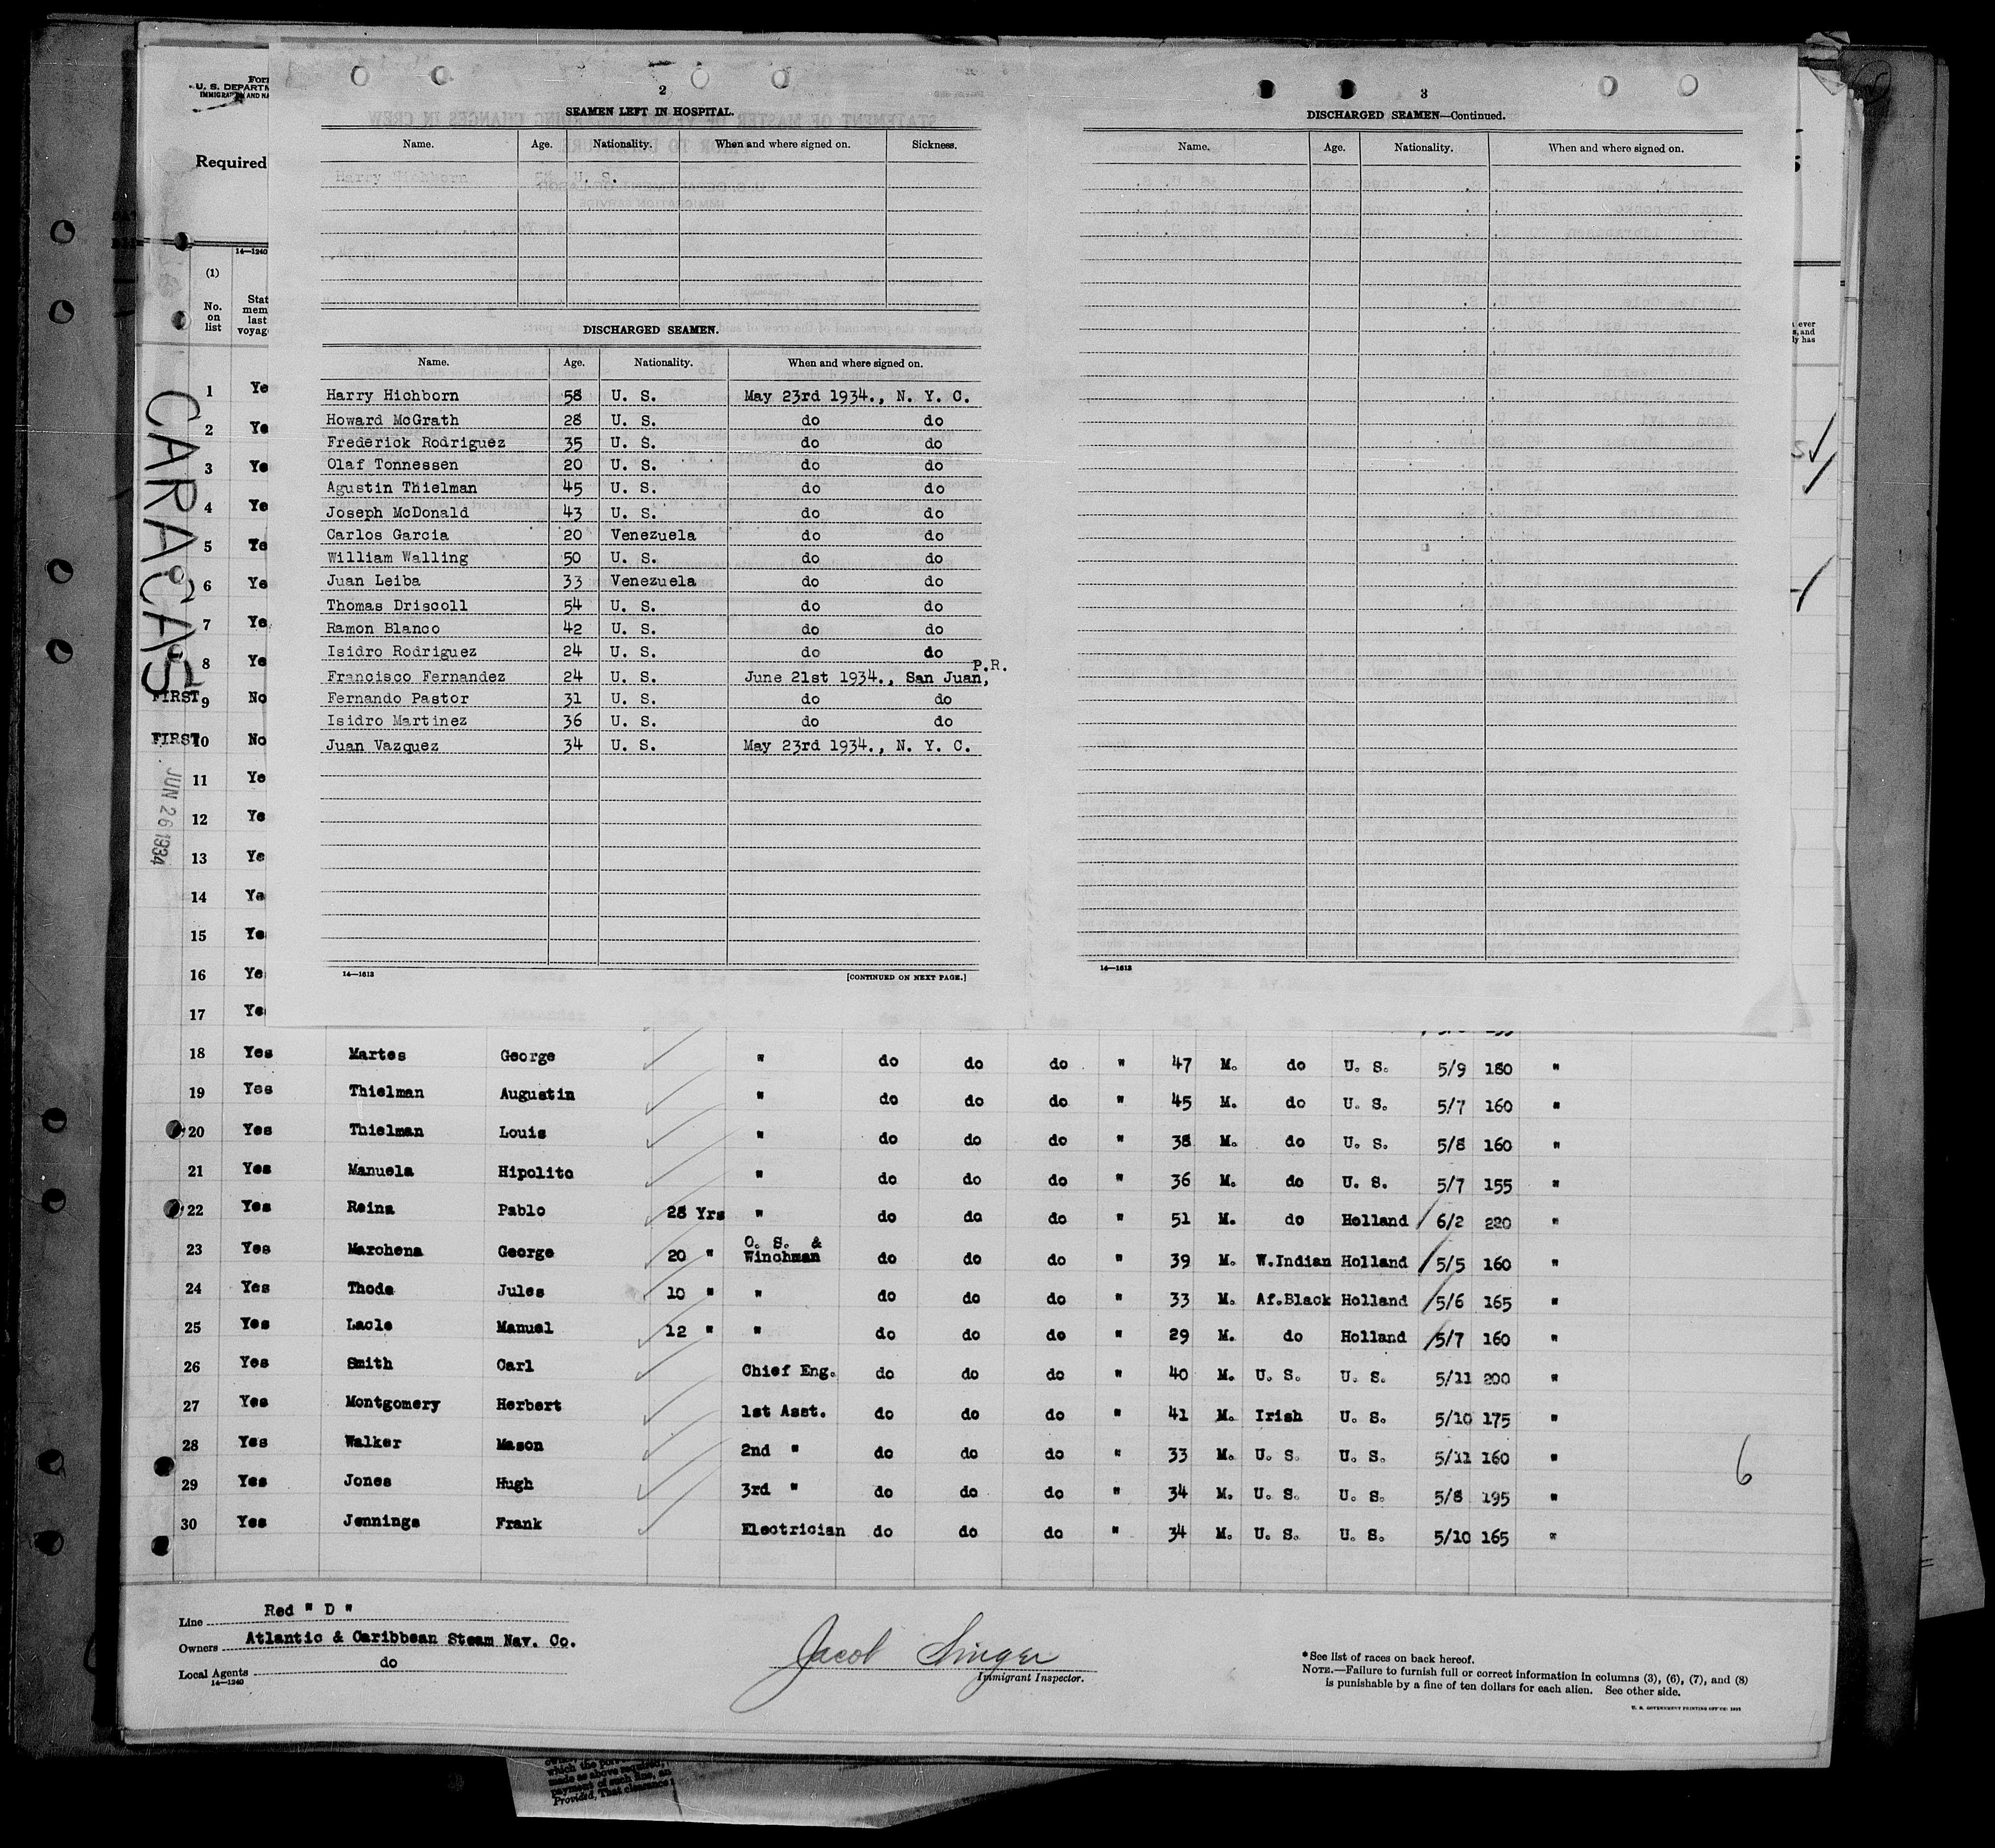 Form
U. S. DEPARTM
IMMIGRATION AND NA
Required
14—1240
(1)
No. on list
Stat
mem
last
voyag
CARACAS
JUN 26 1934
2
SEAMEN LEFT IN HOSPITAL.
Name. Age. Nationality. When and where signed on. Sickness.
Harry Hichborn 58 U. S.
DISCHARGED SEAMEN.
Name. Age. Nationality. When and where signed on.
Harry Hichborn 58 U. S. May 23rd 1934., N. Y. C.
Howard McGrath 28 U. S. do do
Frederick Rodriguez 35 U. S. do do
Olaf Tonnessen 20 U. S. do do
Agustin Thielman 45 U. S. do do
Joseph McDonald 43 U. S. do do
Carlos Garcia 20 Venezuela do do
William Walling 50 U. S. do do
Juan Leiba 33 Venezuela do do
Thomas Driscoll 54 U. S. do do
Ramon Blanco 42 U. S. do do
Isidro Rodriguez 24 U. S. do do
Francisco Fernandez 24 U. S. June 21st 1934., San Juan, P.R.
Fernando Pastor 31 U. S. do do
Isidro Martinez 36 U. S. do do
Juan Vazquez 34 U. S. May 23rd 1934., N. Y. C.
14—1613 [CONTINUED ON NEXT PAGE.]
3
DISCHARGED SEAMEN—Continued.
Name. Age. Nationality. When and where signed on.
14—1613
1 Ye
2 Ye
3 Ye
4 Ye
5 Ye
6 Ye
7 Ye
8 Ye
FIRST 9 No
FIRST 10 No
11 Ye
12 Ye
13 Ye
14 Ye
15 Ye
16 Ye
17 Ye
18 Yes Martes George " do do do " 47 M. do U. S. 5/9 180 "
19 Yes Thielman Augustin " do do do " 45 M. do U. S. 5/7 160 "
20 Yes Thielman Louis " do do do " 38 M. do U. S. 5/8 160 "
21 Yes Manuela Hipolito " do do do " 36 M. do U. S. 5/7 155 "
22 Yes Reina Pablo 28 Yrs " do do do " 51 M. do Holland 6/2 220 "
23 Yes Marchena George 20 " O. S. & Winchman do do do " 39 M. W.Indian Holland 5/5 160 "
24 Yes Thode Jules 10 " " do do do " 33 M. Af.Black Holland 5/6 165 "
25 Yes Lacle Manuel 12 " " do do do " 29 M. do Holland 5/7 160 "
26 Yes Smith Carl Chief Eng. do do do " 40 M. U. S. U. S. 5/11 200 "
27 Yes Montgomery Herbert 1st Asst. do do do " 41 M. Irish U. S. 5/10 175 "
28 Yes Walker Mason 2nd " do do do " 33 M. U. S. U. S. 5/11 160 "
29 Yes Jones Hugh 3rd " do do do " 34 M. U. S. U. S. 5/8 195 "
30 Yes Jennings Frank Electrician do do do " 34 M. U. S. U. S. 5/10 165 "
6
Line Red " D "
Owners Atlantic & Caribbean Steam Nav. Co.
Local Agents do
14—1240
Jacob Singer
Immigrant Inspector.
*See list of races on back hereof.
NOTE.—Failure to furnish full or correct information in columns (3), (6), (7), and (8)
is punishable by a fine of ten dollars for each alien. See other side.
which the
made as above required,
payment of such fine, an
Provided, That clearance